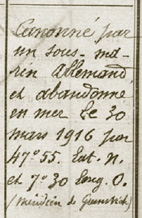 Canonné par
un sous-ma-
rin Allemand
et abandonné
en mer le 30
mars 1916 par
47°55. Lat. N.
et 7°30 Long. O.
(méridien de Greenwich)